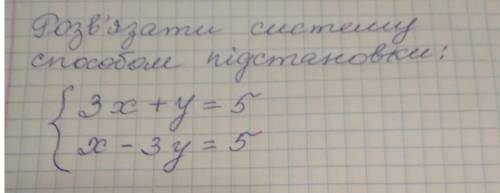 Розв'язати систему
способом підстановки:
3x + y = 5
x - 3y = 5